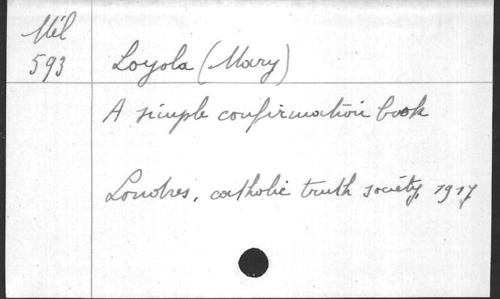 Mél
593
Loyola (Mary)
A simple confirmation book
Londres, catholic truth society, 1917